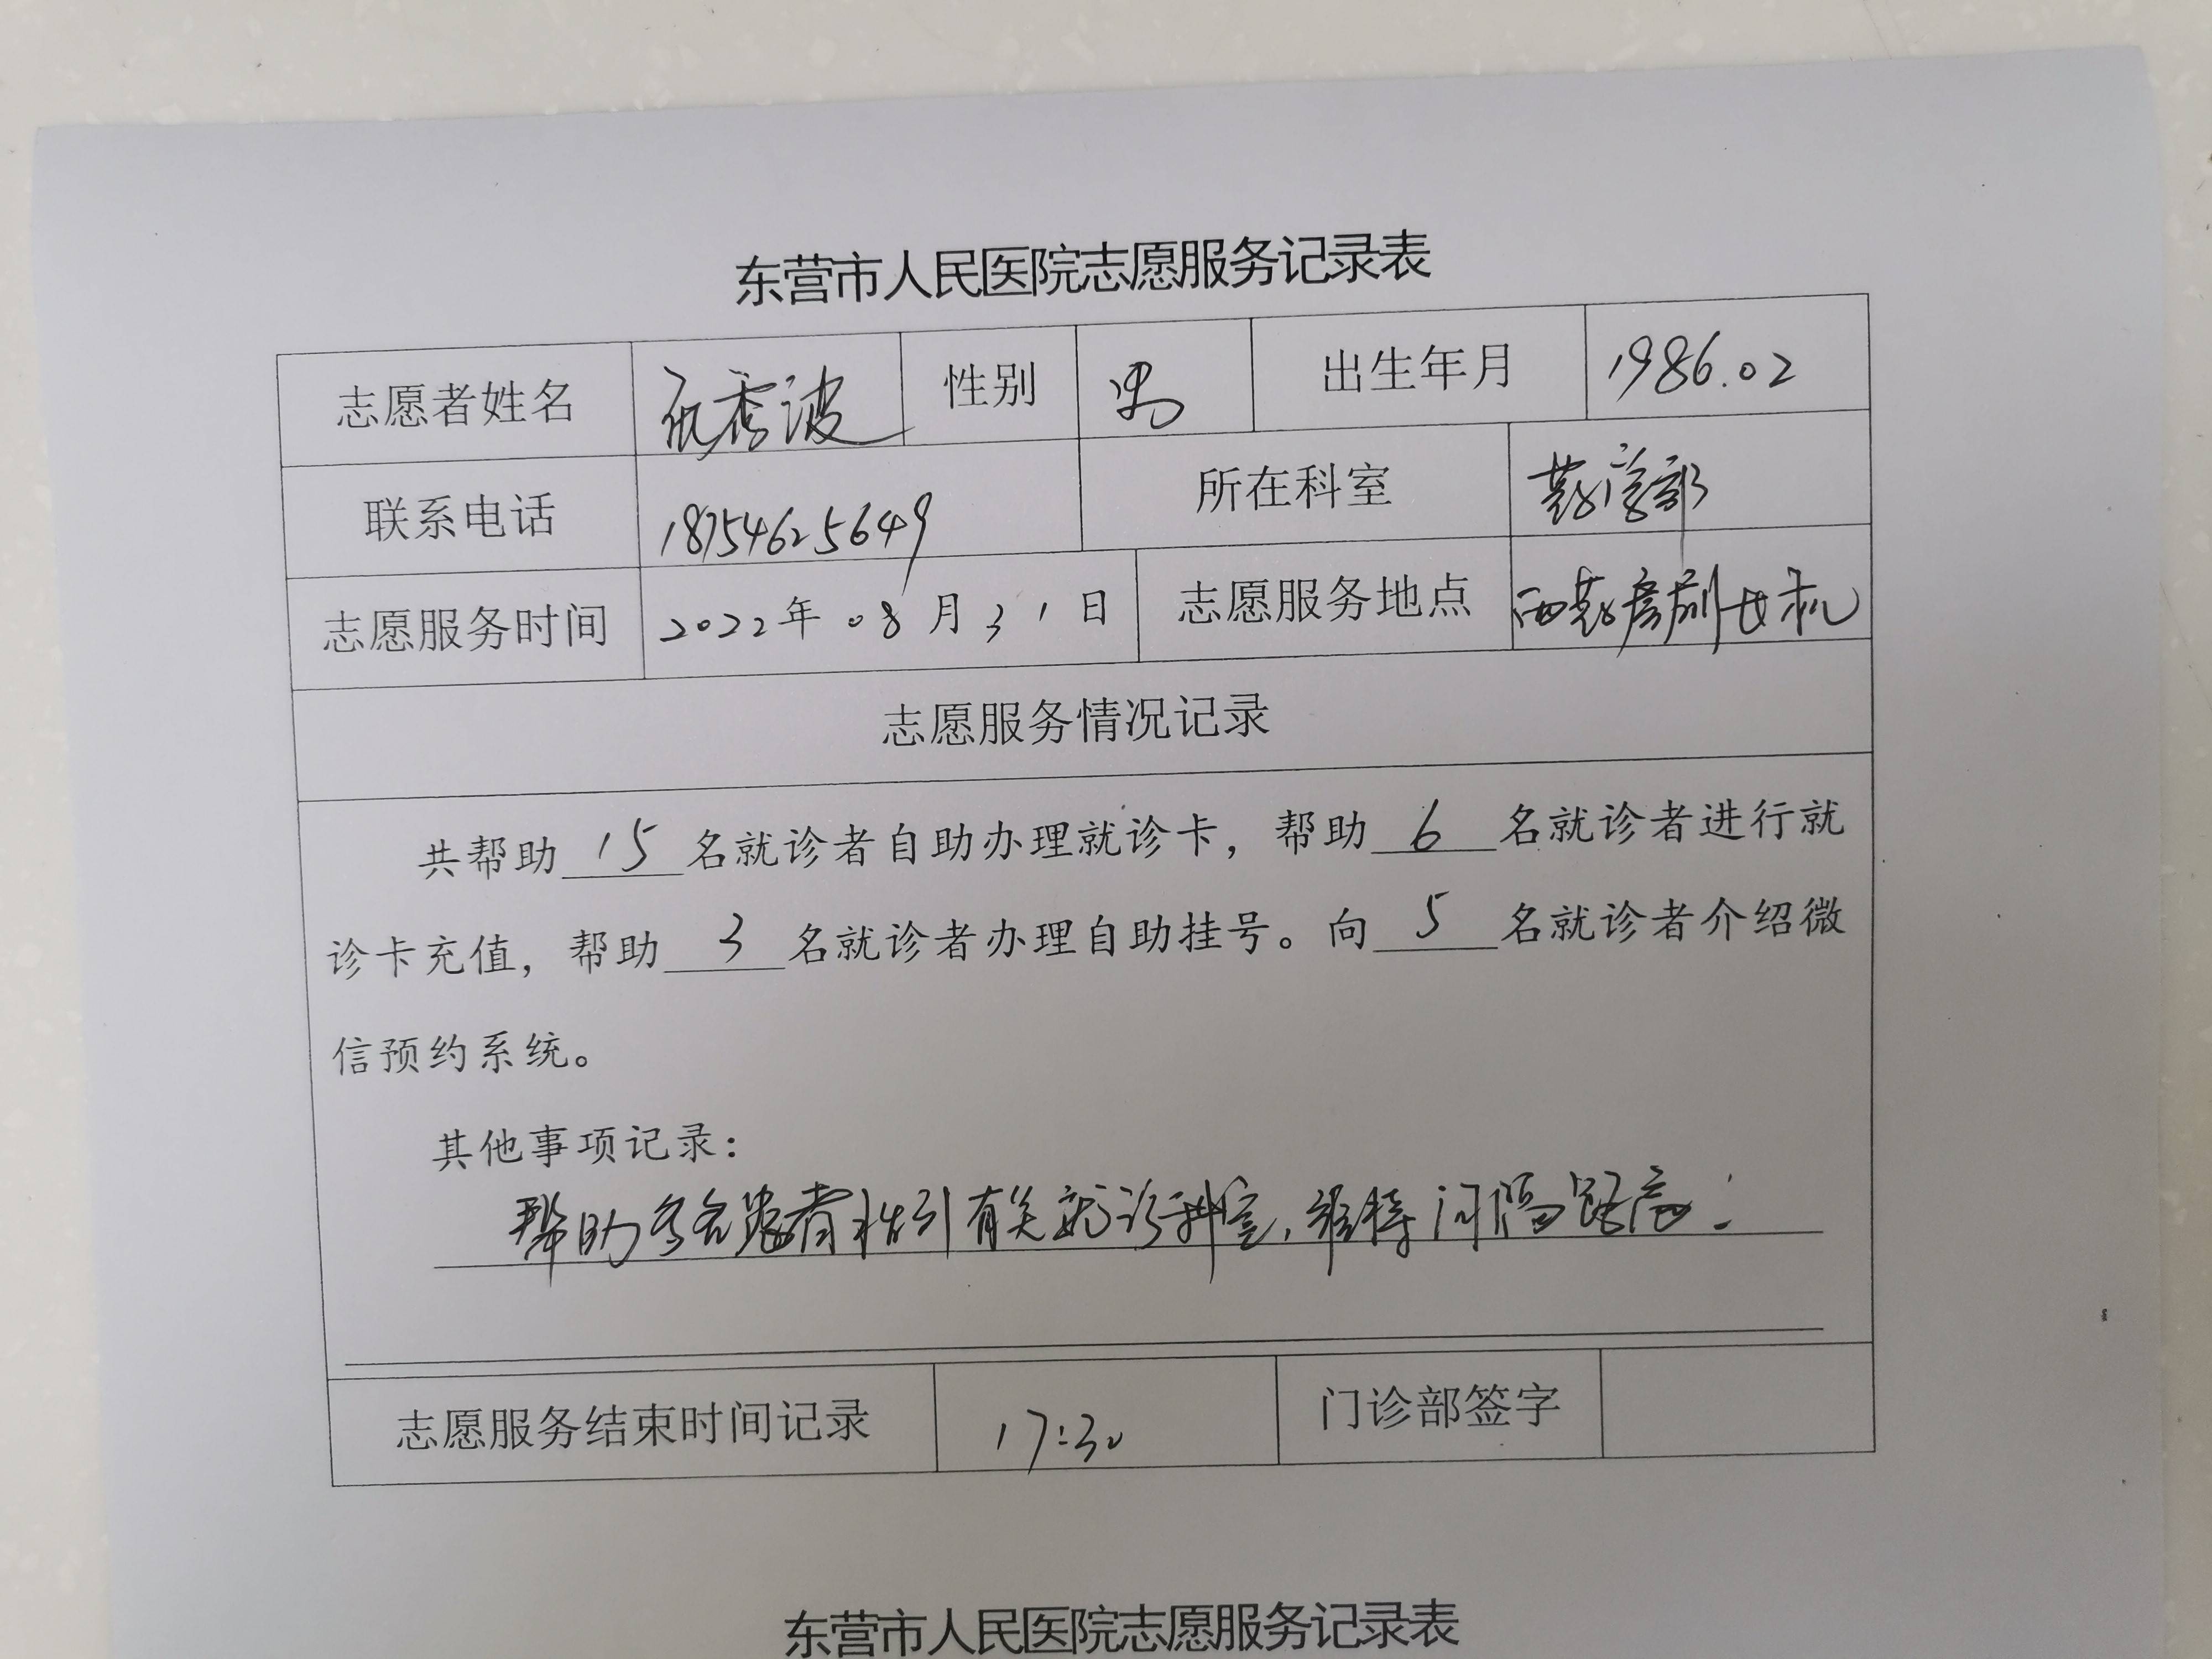 东营市人民医院志愿服务记录表
志愿者姓名 秀波 性别 男 出生年月 1986.02
联系电话 18754625649 所在科室 药学部
志愿服务时间 2022年08月31日 志愿服务地点 西药房刷卡机
志愿服务情况记录
共帮助 15 名就诊者自助办理就诊卡，帮助 6 名就诊者进行就
诊卡充值，帮助 3 名就诊者办理自助挂号。向 5 名就诊者介绍微
信预约系统。
其他事项记录：
帮助多名患者指引有关就诊科室，维持间隔距离！
志愿服务结束时间记录 17:30 门诊部签字
东营市人民医院志愿服务记录表